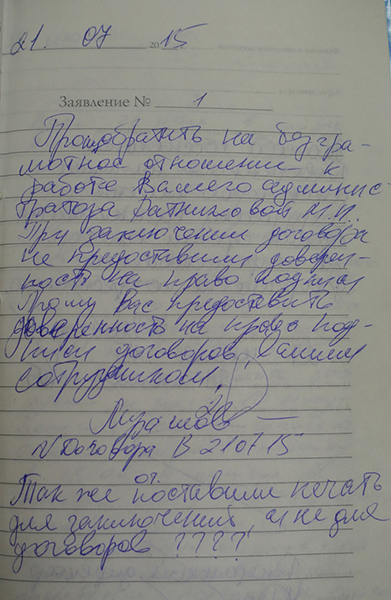 21. 07 2015
Заявление № 1
Прошу обратить на безгра-
мотное отношение к
работе Вашего админис
тратора Ратниковой М.И.
При заключении договора
не предоставили доверен-
ность на право подписи
Прошу Вас предоставить
доверенность на право под-
писи договоров Вашим
сотрудником.
N Договора В 210715
Так же от. поставили печать
для заключений, а не для
договоров ????